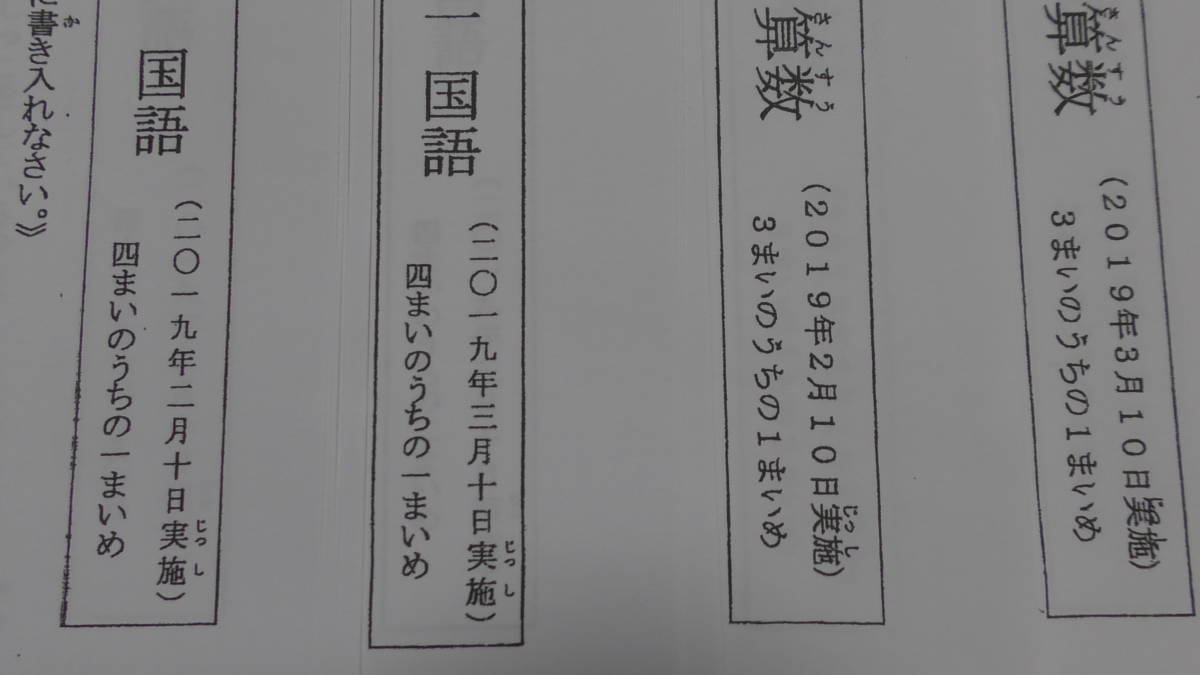 さんすう
算数
じっし
(2019年3月10日実施)
3まいのうちの1まいめ
さんすう
算数
じっし
(2019年2月10日実施)
3まいのうちの1まいめ
一 国語
じっし
(二〇一九年三月十日実施)
四まいのうちの一まいめ
国語
じっし
(二〇一九年二月十日実施)
四まいのうちの一まいめ
書き入れなさい。》